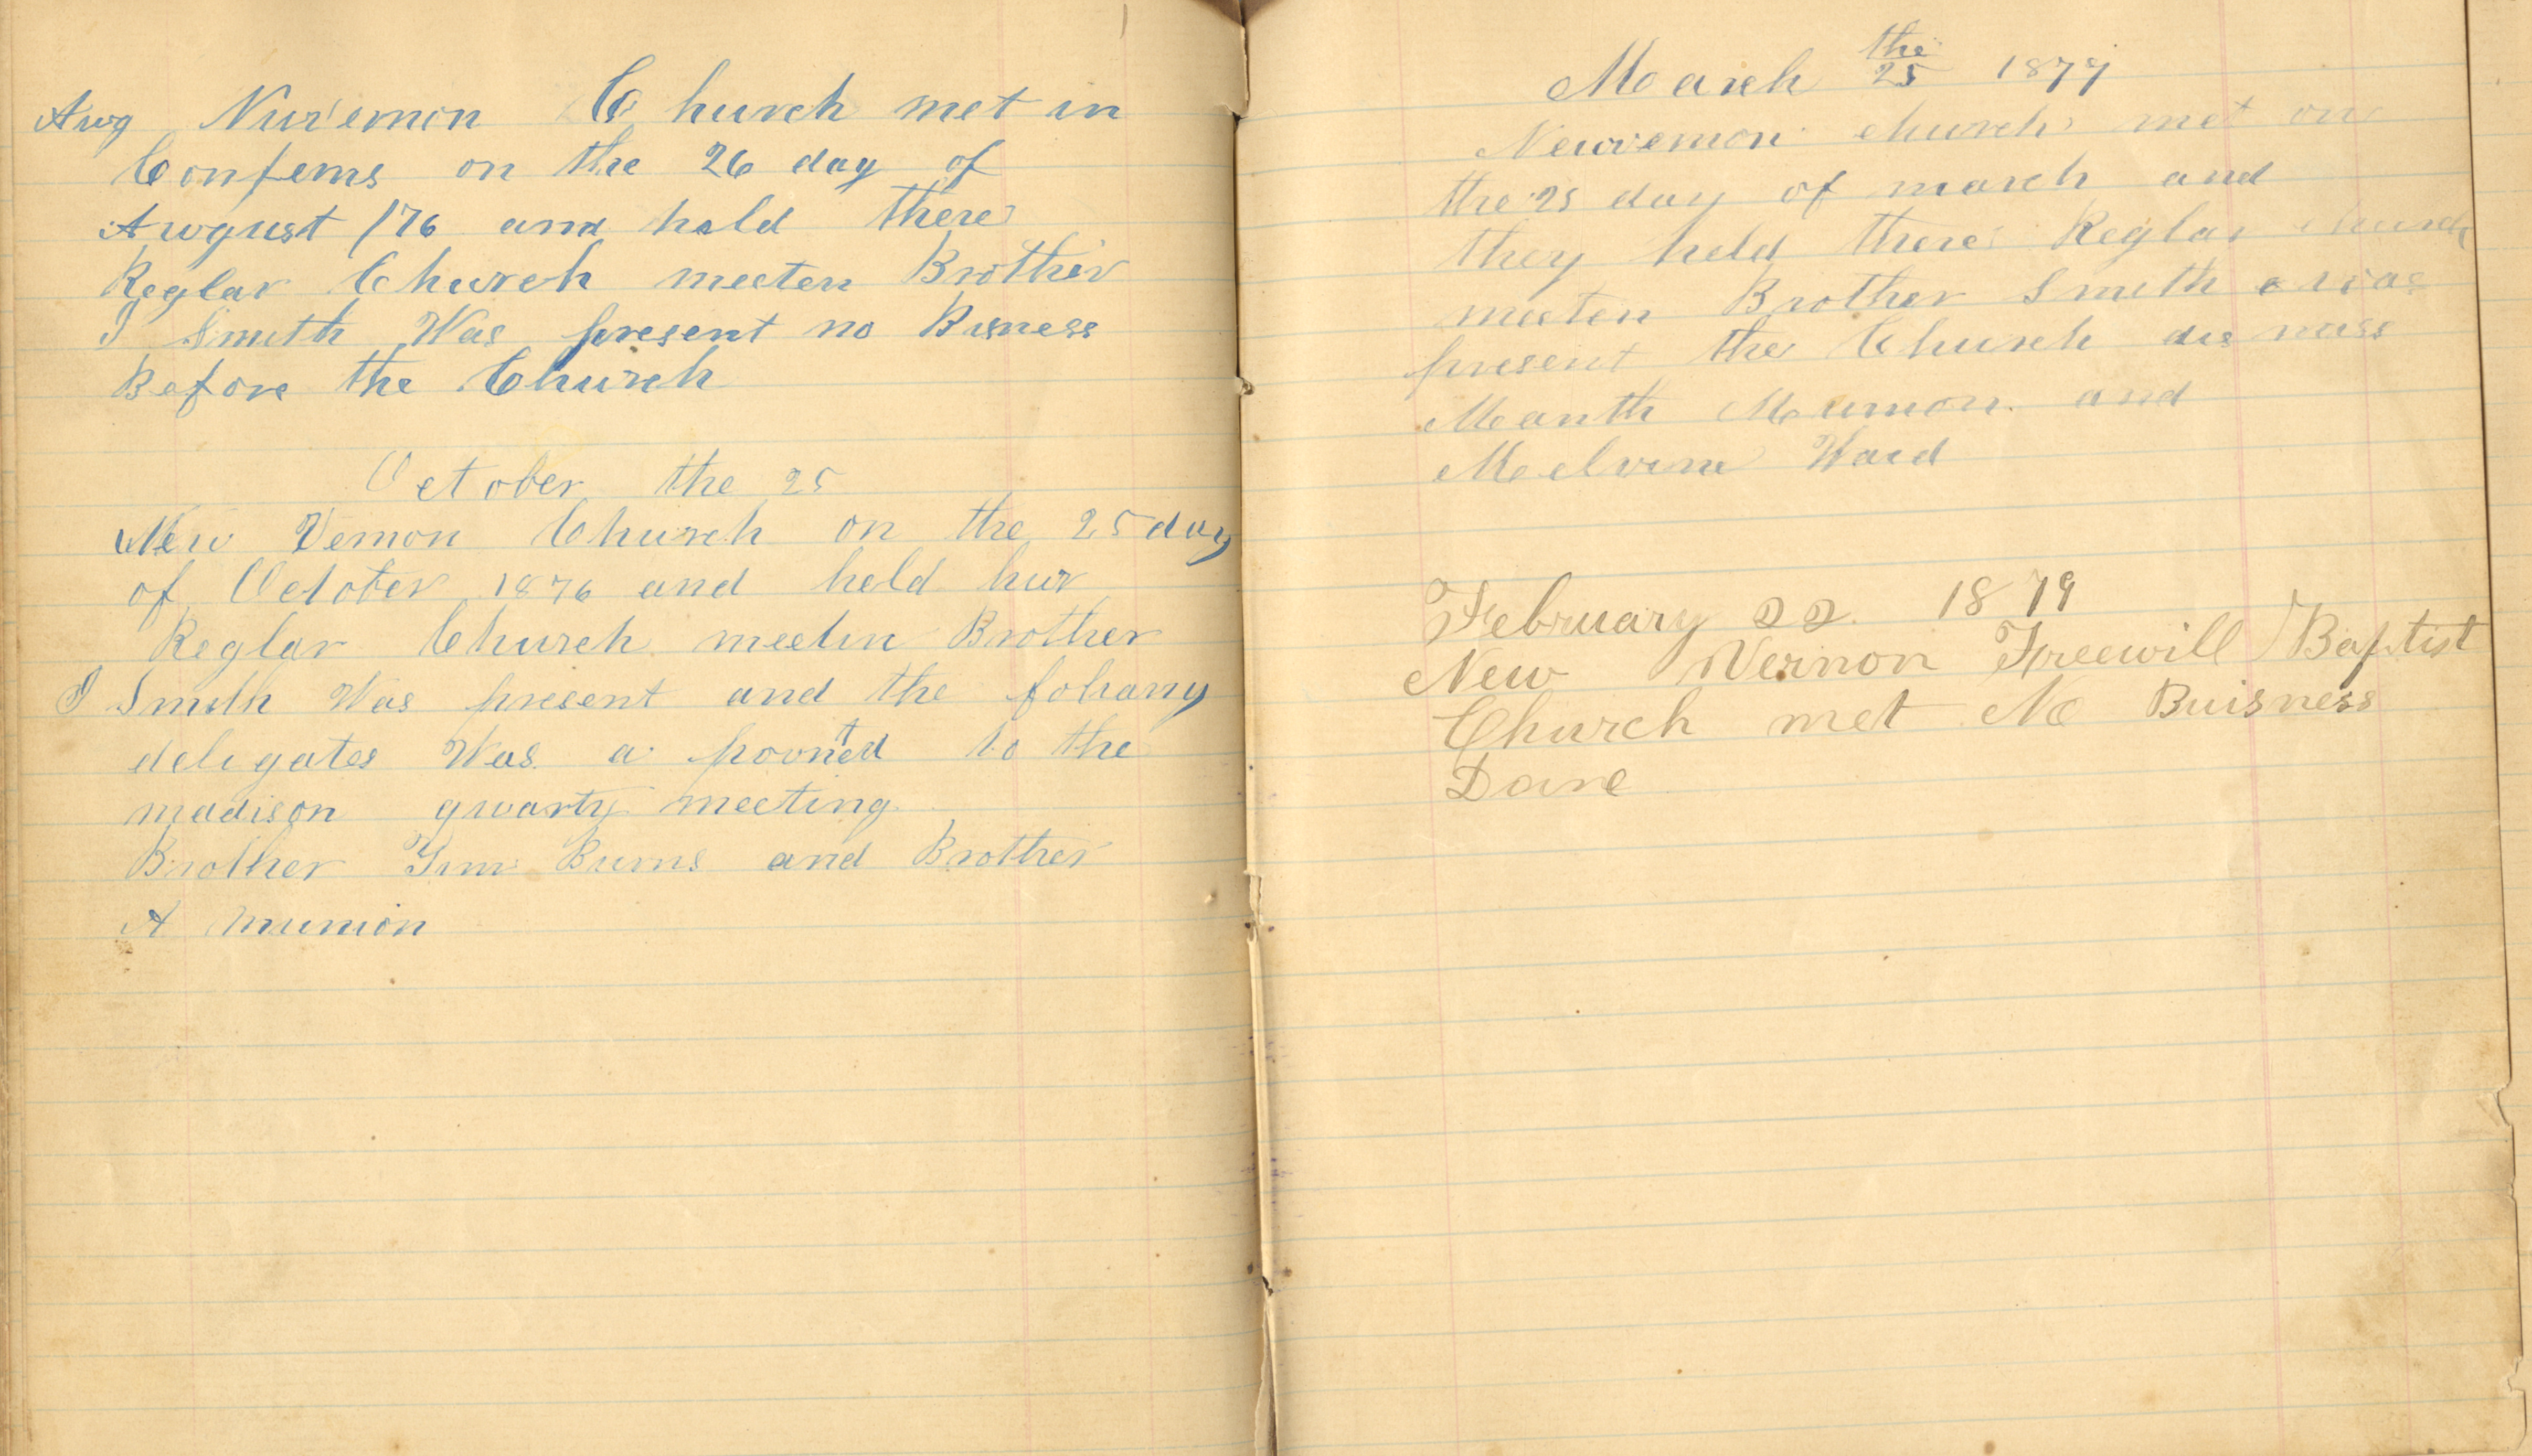 Awg Nur'emon Church met in
Confems on the 26 day of
Awgust /76 and hald there
Reglar Church meeten Brother
I Smith Was present no Bisness
Before the Church
October the 25
New Vernon Church on the 25 day
of October 1876 and held hur
Reglar Church meetin Brother
I Smith Was present and the folrany
deligates Was a poornted to the
madison qwarty meeting
Brother Jim Burns and Brother
A munion
March the 25 1879
Newvernon church met on
the 25 day of march and
they held there Reglar church
meeten Brother Smith was
present the Church
Manth Munion and
Melvine Ward
February 22. 1879
New Vernon Freewill Baptist
Church met No Buisness
Done